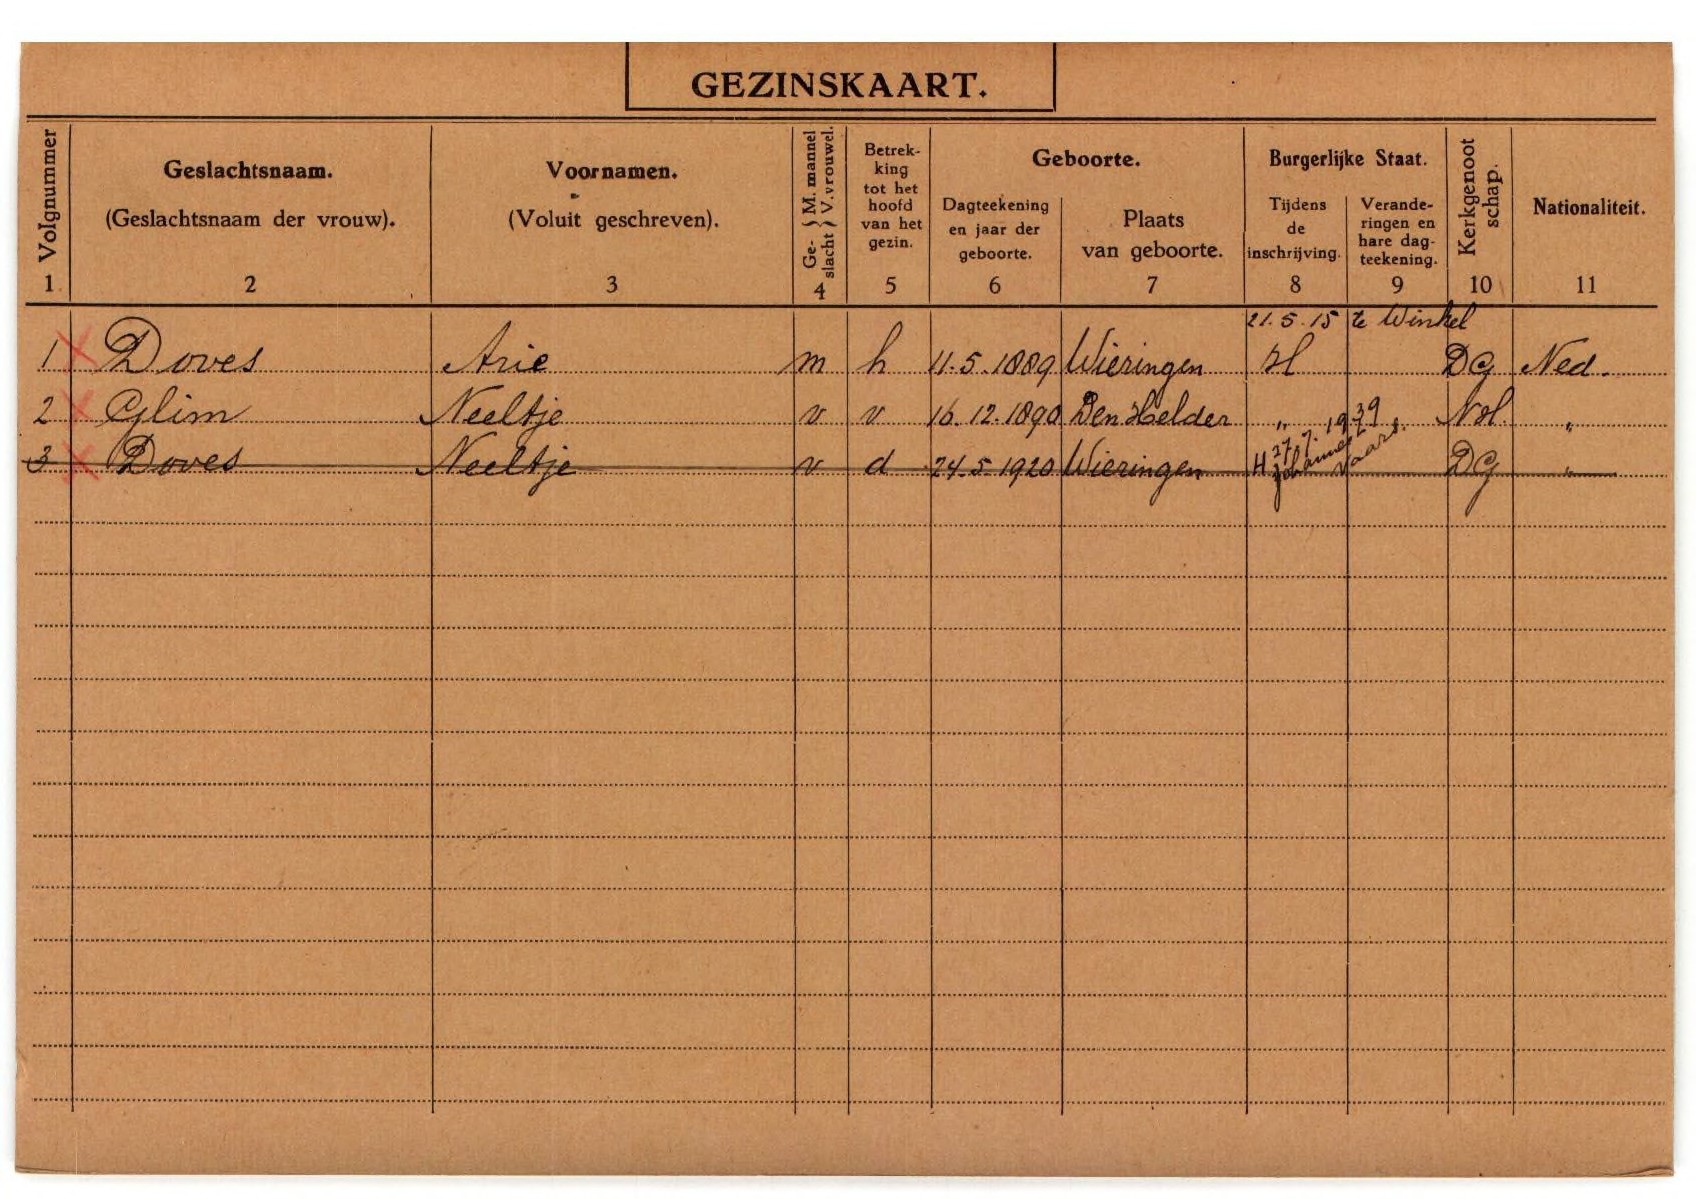 GEZINSKAART.
Volgnummer
1
Geslachtsnaam.
(Geslachtsnaam der vrouw).
2
Voornamen.
(Voluit geschreven).
3
Ge-slacht } M. mannel V. vrouwel.
4
Betrek-
king
tot het
hoofd
van het
gezin.
5
Geboorte.
Dagteekening
en jaar der
geboorte.
6
Plaats
van geboorte.
7
Burgerlijke Staat.
Tijdens
de
inschrijving.
8
Verande-
ringen en
hare dag-
teekening.
9
Kerkgenoot
schap.
10
Nationaliteit.
11
21.5.15 te Winkel
1 Doves Arie m h 11.5.1889 Wieringen H DG Ned.
2 Glim Neeltje v v 16.12.1890 Den Helder „ NH. „
3 Doves Neeltje v d 24.5 1920 Wieringen H DG „
27.7.1939
Johannes